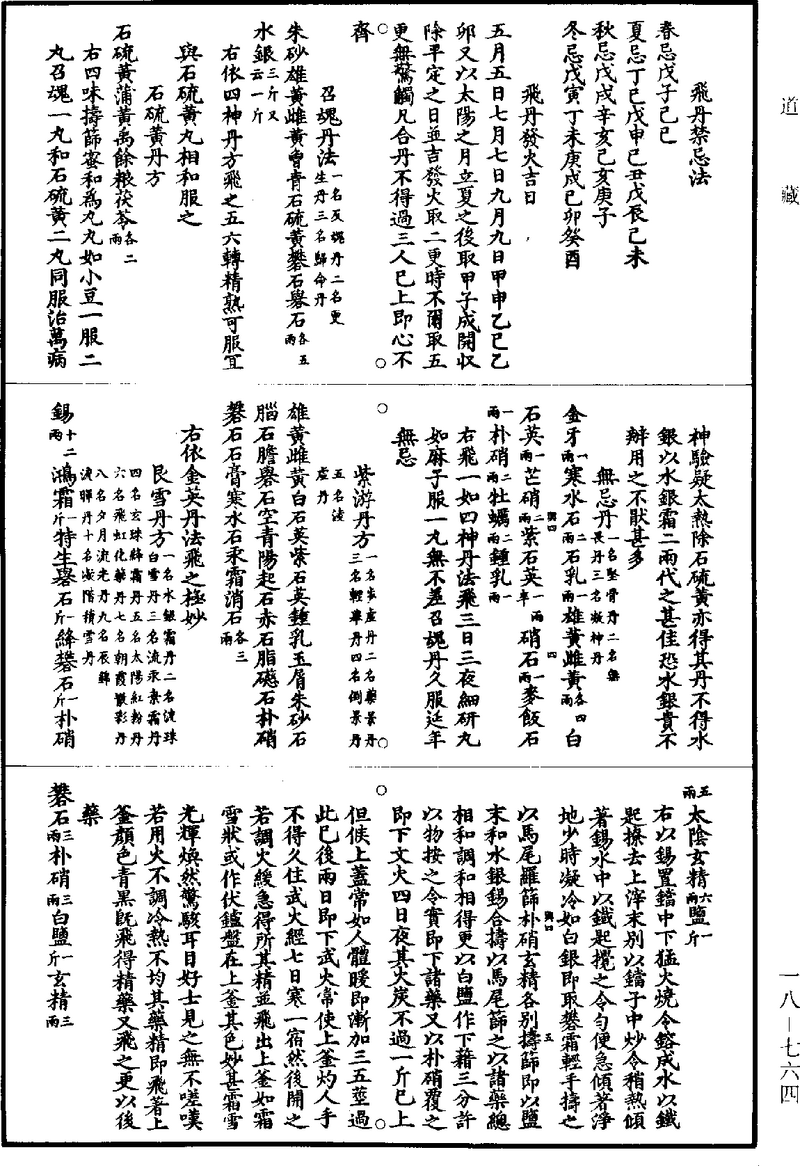 道藏
飛丹禁忌法
春忌戊子己巳
夏忌丁巳戊申己丑戊辰己未
秋忌戊戌辛亥己亥庚子
冬忌戊寅丁未庚戌己卯癸酉
飛丹發火吉日
五月五日七月七日九月九日甲申乙巳乙
卯又以太陽之月立夏之後取甲子成開收
除平定之日並吉發火取二更時不爾取五
更無驚觸凡合丹不得過三人已上即心不
齊
召魂丹法一名反魂丹二名更
生丹三名歸命丹
朱砂雄黃雌黃曾青石硫黃礬石礜石各五
兩
水銀三斤又
云一斤
右依四神丹方飛之五六轉精熟可服宜
與石硫黃丸相和服之
石硫黃丹方
石硫黃蒲黃禹餘粮茯苓各二
兩
右四味擣篩蜜和為丸丸如小豆一服二
丸召魂一丸和石硫黃二丸同服治萬病
神驗疑太熱除石硫黃亦得其丹不得水
銀以水銀霜二兩代之甚佳恐水銀貴不
辯用之不猒甚多
無忌丹一名堅骨丹二名無
畏丹三名凝神丹
金牙一
兩寒水石四
兩石乳二
兩雄黃雌黃各四
兩白
石英一
兩芒硝二
兩紫石英一兩
半硝石四
兩麥飯石
一
兩朴硝二
兩牡蠣二
兩鍾乳一
兩
右飛一如四神丹法飛三日三夜細研丸
如麻子服一丸無不差召魂丹久服延年
無忌
紫游丹方
三名輕華丹四名倒景丹
五名凌
虛丹
雄黃雌黃白石英紫石英鍾乳玉屑朱砂石
腦石膽礜石空青陽起石赤石脂礠石朴硝
礬石石膏寒水石汞霜消石各三
兩
右依金英丹法飛之極妙
艮雪丹方一名水銀霜丹二名流珠
白雪丹三名流汞素霜丹
四名玄珠絳霜丹五名太陽紅粉丹
六名飛虹化藥丹七名朝霞散彩丹
八名夕月流光丹九名辰錦
流暉丹十名凝階積雪丹
錫十二
兩鴻霜一
斤特生礜石一
斤絳礬石一
斤朴硝
五
兩太陰玄精六
兩鹽一
斤
右以錫置鐺中下猛火燒令鎔成水以鐵
匙撩去上滓末別以鐺子中炒令稍熱傾
著錫水中以鐵匙攪之令勻便急傾著淨
地少時凝冷如白銀即取礬霜輕手擣之
以馬尾羅篩朴硝玄精各別擣篩即以鹽
末和水銀錫合擣以馬尾篩之以諸藥總
相和調和相得更以白鹽作下藉三分許
以物按之令實即下諸藥又以朴硝覆之
即下文火四日夜其火炭不過一斤已上
但候上蓋常如人體暖即漸加三五莖過
此已後兩日即下武火常使上釜灼人手
不得久住武火經七日寒一宿然後開之
若調火緩急得所其精並飛出上釜如霜
雪狀或作伏鑪盤在上釜其色妙甚霜雪
光輝煥然驚駭耳目好士見之無不嗟嘆
若用火不調冷熱不均其藥精即飛著上
釜顏色青黑旣飛得精藥又飛之更以後
藥
礬石三
兩朴硝三
兩白鹽一
斤玄精三
兩
一八—七六四